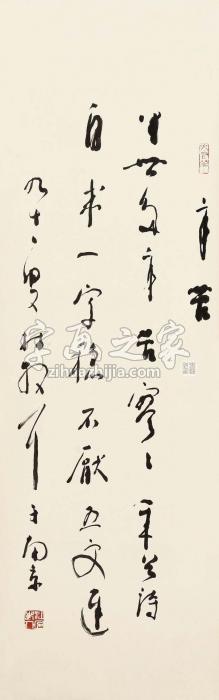 辛苦
半世多辛苦寥〻詩
自求一字穩不厭五更遲
九十一叟林散耳于南京
字画之家
zihuazhijia.com